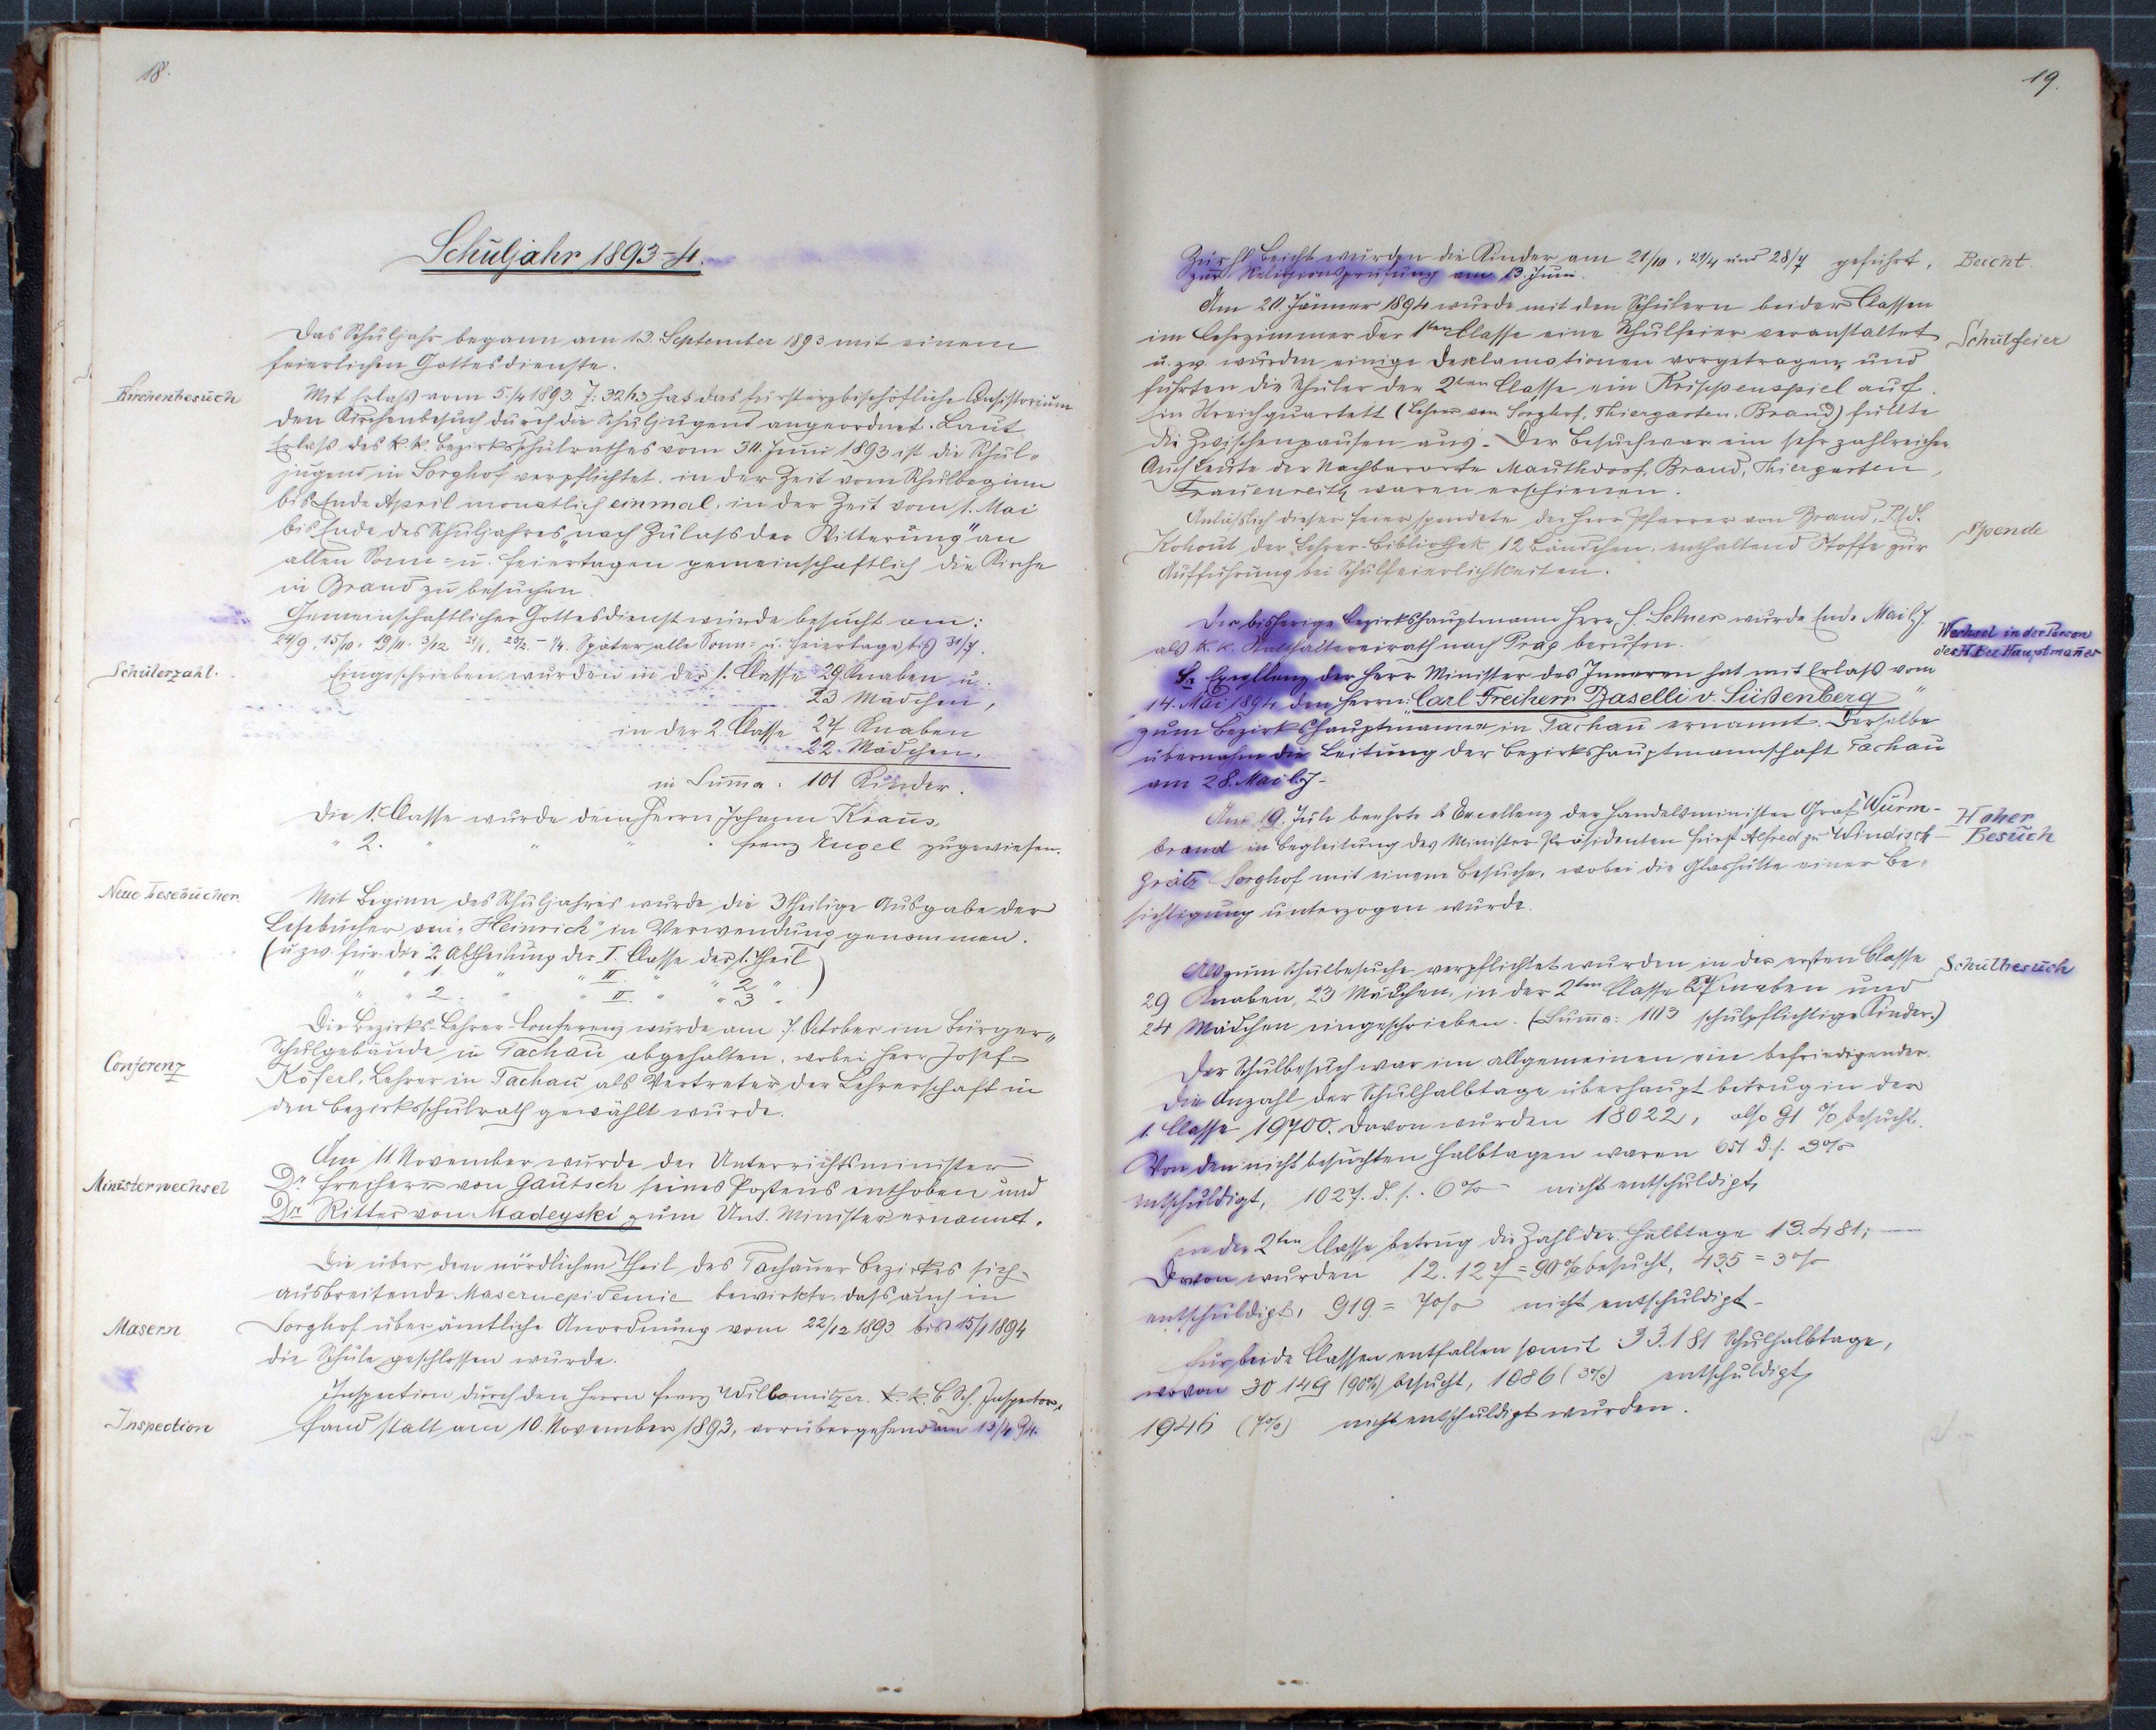 18.
Schuljahr 1893-4.
Das Schuljahr begann am 13. September 1893 mit einem
feierlichen Gottesdienste.
Kirchenbesuch
Mit Erlaß vom 5./4 1893 hat das fürsterzbischöfliche Consistorium
den Kirchenbesuch durch die Schuljugend angeordnet. Laut
Erlaß des k. k. Bezirksschulrathes vom 30. Juni 1893 ist die Schul-
jugend in Sorghof verpflichtet, in der Zeit vom Schulbeginn
bis Ende April monatlich einmal, in der Zeit vom 1. Mai
bis Ende des Schuljahres „nach Zulaß der Witterung" an
allen Sonn- u. Feiertagen gemeinschaftlich die Kirche
in Brand zu besuchen.
Gemeinschaftlicher Gottesdienst wurde besucht am:
24/9, 15/10, 19/11, 3/12 21/1, 25/2 – 1/4. Später alle Sonn- u. Feiertage bis 31/7.
Schülerzahl.
Eingeschrieben wurden in der 1. Classe 29 Knaben u.
23 Mädchen,
in der 2. Classe 27 Knaben
22 Mädchen.
in Summa: 101 Kinder.
Die 1. Classe wurde dem Herrn Johann Kraus,
" 2. " " " Franz Engel zugewiesen.
Neue Lesebücher.
Mit Beginn des Schuljahres wurde die 3theilige Ausgabe der
Lesebücher von „Heinrich" in Verwendung genommen.
(u. zw. für die 2. Abtheilung der I. Classe der 1. Theil
" " 1. " " II " " 2 "
" " 2. " " II. " " 3 " )
Conferenz
Die Bezirks-Lehrer-Conferenz wurde am 7. October im Bürger-
schulgebäude in Tachau abgehalten, wobei Herr Josef
Köferl, Lehrer in Tachau als Vertreter der Lehrerschaft in
den Bezirksschulrath gewählt wurde.
Ministerwechsel
Am 11 November wurde der Unterrichtsminister
Dr. Freiherr von Gautsch seines Postens enthoben und
Dr. Ritter von Madeyski zum Unt. Minister ernannt.
Masern
Die über den nördlichen Theil des Tachauer Bezirkes sich
ausbreitende Masernepidemie bewirkte, daß auch in
Sorghof über ämtliche Anordnung vom 22/12 1893 bis 15/1 1894
die Schule geschlossen wurde.
Inspection
Inspection durch den Herrn Franz Willomitzer, k. k. B. Sch. Inspector,
fand statt am 10. November 1893, vorübergehend am 13/4 94.
19.
Zur hl. Beicht wurden die Kinder am 21/10, 21/4 und 28/7 geführt,
Beicht
zur Religionsprüfung am 13. Juni.
Am 20. Jänner 1894 wurde mit den Schülern beider Classen
im Lehrzimmer der 1ten Classe eine Schulfeier veranstaltet
Schulfeier
u. zw. wurden einige Deklamationen vorgetragen, und
führten die Schüler der 2ten Classe ein Krippenspiel auf.
Ein Streichquartett (Lehrer von Sorghof, Thiergarten, Brand) füllte
die Zwischenpausen aus. Der Besuch war ein sehr zahlreicher.
Auch Leute der Nachbarorte Mauthdorf, Brand, Thiergarten,
Frauenreith waren erschienen.
Anläßlich dieser Feier spendete der Herr Pfarrer von Brand,
Spende
Kohout der Lehrer-Bibliothek 12 Bändchen, enthaltend Stoffe zur
Aufführung bei Schulfeierlichkeiten.
Der bisherige Bezirkshauptmann Herr wurde Ende Mai l. J.
Wechsel in der Person
des H. Bez. Hauptmannes
als k. k. Statthaltereirath nach Prag berufen.
Se. Excellenz der Herr Minister des Inneren hat mit Erlaß vom
14. Mai 1894 den Herrn: Carl Freiherr Baselli v. Süßenberg
zum Bezirkshauptmanne in Tachau ernannt. Derselbe
übernahm die Leitung der Bezirkshauptmannschaft Tachau
am 28. Mai l. J.
Am 9. Juli beehrte Excellenz der Handelsminister Graf Wurm-
Hoher
Besuch
brand in Begleitung des Minister-Präsidenten Fürst Alfred zu Windisch-
grätz Sorghof mit einem Besuche, wobei die Glashütte einer Be-
sichtigung unterzogen wurde.
Als zum Schulbesuche verpflichtet wurden in der ersten Classe
Schulbesuch
29 Knaben, 23 Mädchen, in der 2ten Classe 27 Knaben und
24 Mädchen eingeschrieben. (Summa: 103 schulpflichtige Kinder.)
Der Schulbesuch war im allgemeinen ein befriedigender.
Die Anzahl der Schulhalbtage überhaupt betrug in der
1. Classe 19700. Davon wurden 18022, also 91 % besucht.
Von den nicht besuchten Halbtagen waren 651 d. s. 3%
entschuldigt, 1027. d. s. 6% nicht entschuldigt,
In der 2ten Classe betrug die Zahl der Halbtage 13.481;
Davon wurden 12.127 = 90% besucht, 435 = 3%
entschuldigt, 919 = 7% nicht entschuldigt.
Für beide Classen entfallen somit 33.181 Schulhalbtage,
wovon 30149 (90%) besucht, 1086 (3%) entschuldigt,
1946 (7%) nicht entschuldigt wurden.